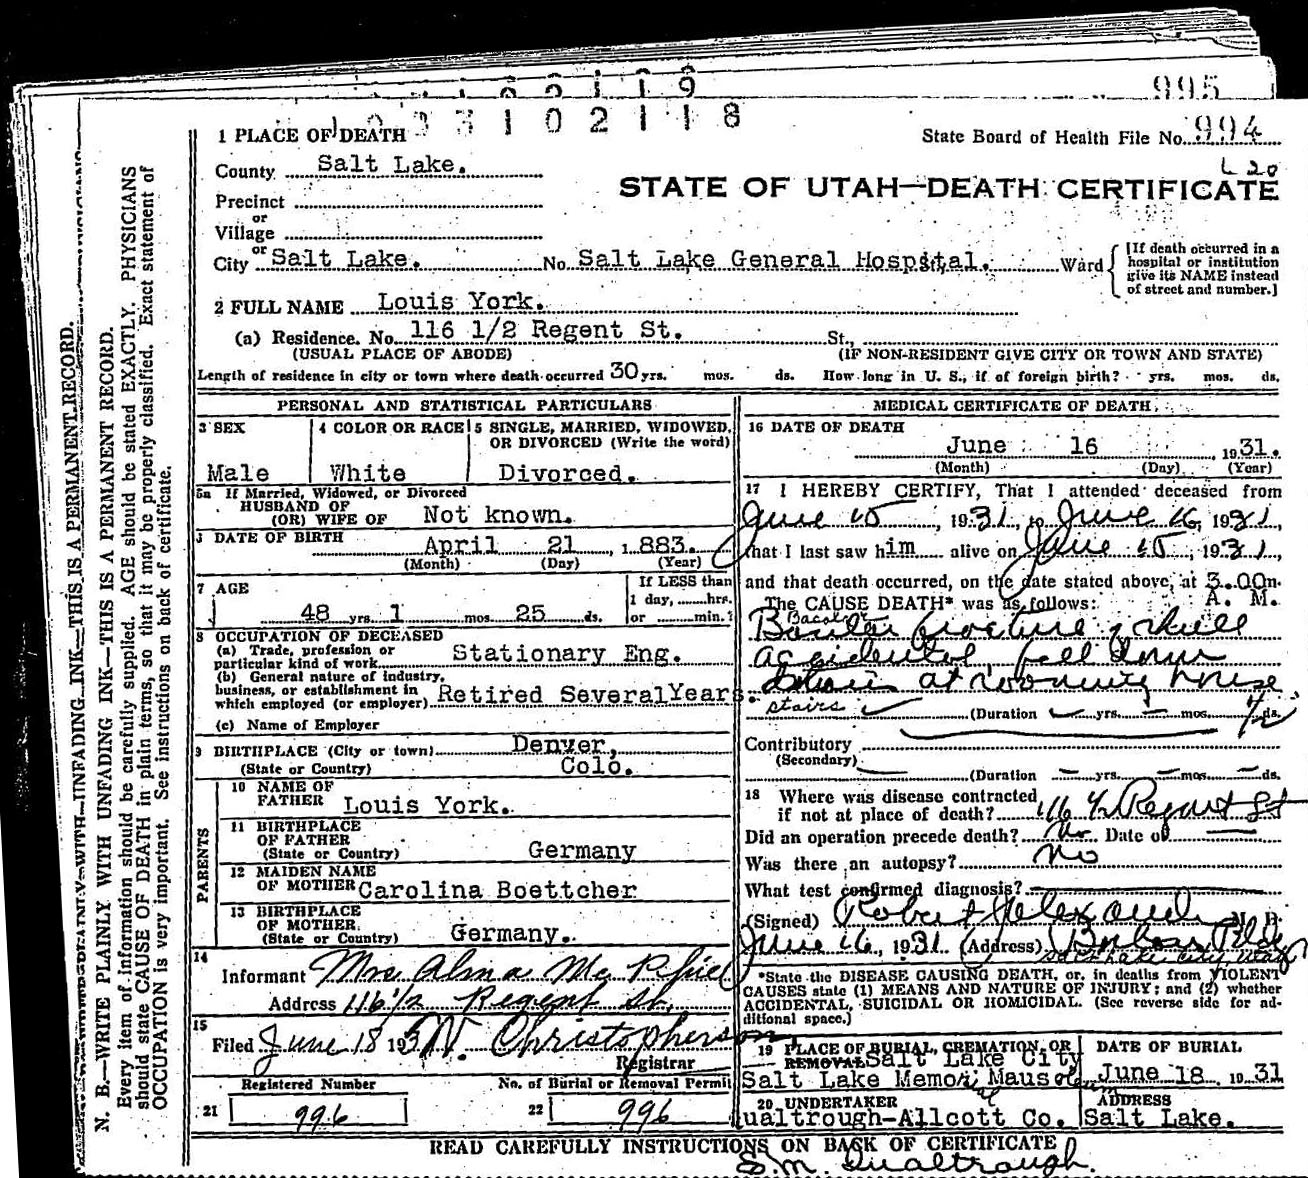 995
1 0 0 3 1 0 2 1 1 8
1 PLACE OF DEATH
State Board of Health File No. 994
County Salt Lake.
L 20
STATE OF UTAH—DEATH CERTIFICATE
Precinct
or
Village
or
City Salt Lake. No. Salt Lake General Hospital. Ward
[If death occurred in a
hospital or institution
give its NAME instead
of street and number.]
2 FULL NAME Louis York.
(a) Residence. No. 116 1/2 Regent St. St.,
(USUAL PLACE OF ABODE) (IF NON-RESIDENT GIVE CITY OR TOWN AND STATE)
Length of residence in city or town where death occurred 30 yrs. mos. ds. How long in U. S., if of foreign birth? yrs. mos. ds.
PERSONAL AND STATISTICAL PARTICULARS
3 SEX
Male
4 COLOR OR RACE
White
5 SINGLE, MARRIED, WIDOWED,
OR DIVORCED (Write the word)
Divorced.
5a If Married, Widowed, or Divorced
HUSBAND OF
(OR) WIFE OF Not known.
DATE OF BIRTH
April 21, 1883.
(Month) (Day) (Year)
7 AGE
48 yrs. 1 mos. 25 ds.
If LESS than
1 day, hrs.
or min.?
8 OCCUPATION OF DECEASED
(a) Trade, profession or
particular kind of work Stationary Eng.
(b) General nature of industry,
business, or establishment in
which employed (or employer) Retired Several Years.
(c) Name of Employer
9 BIRTHPLACE (City or town) Denver,
(State or Country) Colo.
PARENTS
10 NAME OF
FATHER Louis York.
11 BIRTHPLACE
OF FATHER
(State or Country) Germany
12 MAIDEN NAME
OF MOTHER Carolina Boettcher
13 BIRTHPLACE
OF MOTHER.
(State or Country) Germany.
14
Informant Mrs Alma Mc
Address 116 1/2 Regent St.
15
Filed June 18 193 N. Christopherson
Registrar
Registered Number
21 996
No. of Burial or Removal Permit
22 996
MEDICAL CERTIFICATE OF DEATH
16 DATE OF DEATH
June 16, 1931.
(Month) (Day) (Year)
17 I HEREBY CERTIFY, That I attended deceased from
June 15, 1931, to June 16, 1931,
that I last saw him alive on June 15, 1931,
and that death occurred, on the date stated above, at 3.00 m.
The CAUSE DEATH* was as follows: A. M.
Basilar fracture of skull
accidental, fell down
stairs at rooming house.
stairs
(Duration yrs. mos. 1/2 ds.
Contributory
(Secondary)
(Duration yrs. mos. ds.
18 Where was disease contracted
if not at place of death? 116 1/2 Regent St
Did an operation precede death? No Date of
Was there an autopsy? No
What test confirmed diagnosis?
(Signed) Robert Alexander M. D.
June 16, 1931 (Address) Boston Bldg
Salt Lake City, Utah
*State the DISEASE CAUSING DEATH, or, in deaths from VIOLENT
CAUSES state (1) MEANS AND NATURE OF INJURY; and (2) whether
ACCIDENTAL, SUICIDAL OR HOMICIDAL. (See reverse side for ad-
ditional space.)
19 PLACE OF BURIAL, CREMATION, OR
REMOVAL Salt Lake City
Salt Lake Memorial Mausoleum
DATE OF BURIAL
June 18, 1931
20 UNDERTAKER
ualtrough-Allcott Co.
ADDRESS
Salt Lake.
READ CAREFULLY INSTRUCTIONS ON BACK OF CERTIFICATE
S.M. Qualtrough.
N. B.—WRITE PLAINLY WITH UNFADING INK—THIS IS A PERMANENT RECORD.
Every item of information should be carefully supplied. AGE should be stated EXACTLY. PHYSICIANS
should state CAUSE OF DEATH in plain terms, so that it may be properly classified. Exact statement of
OCCUPATION is very important. See instructions on back of certificate.